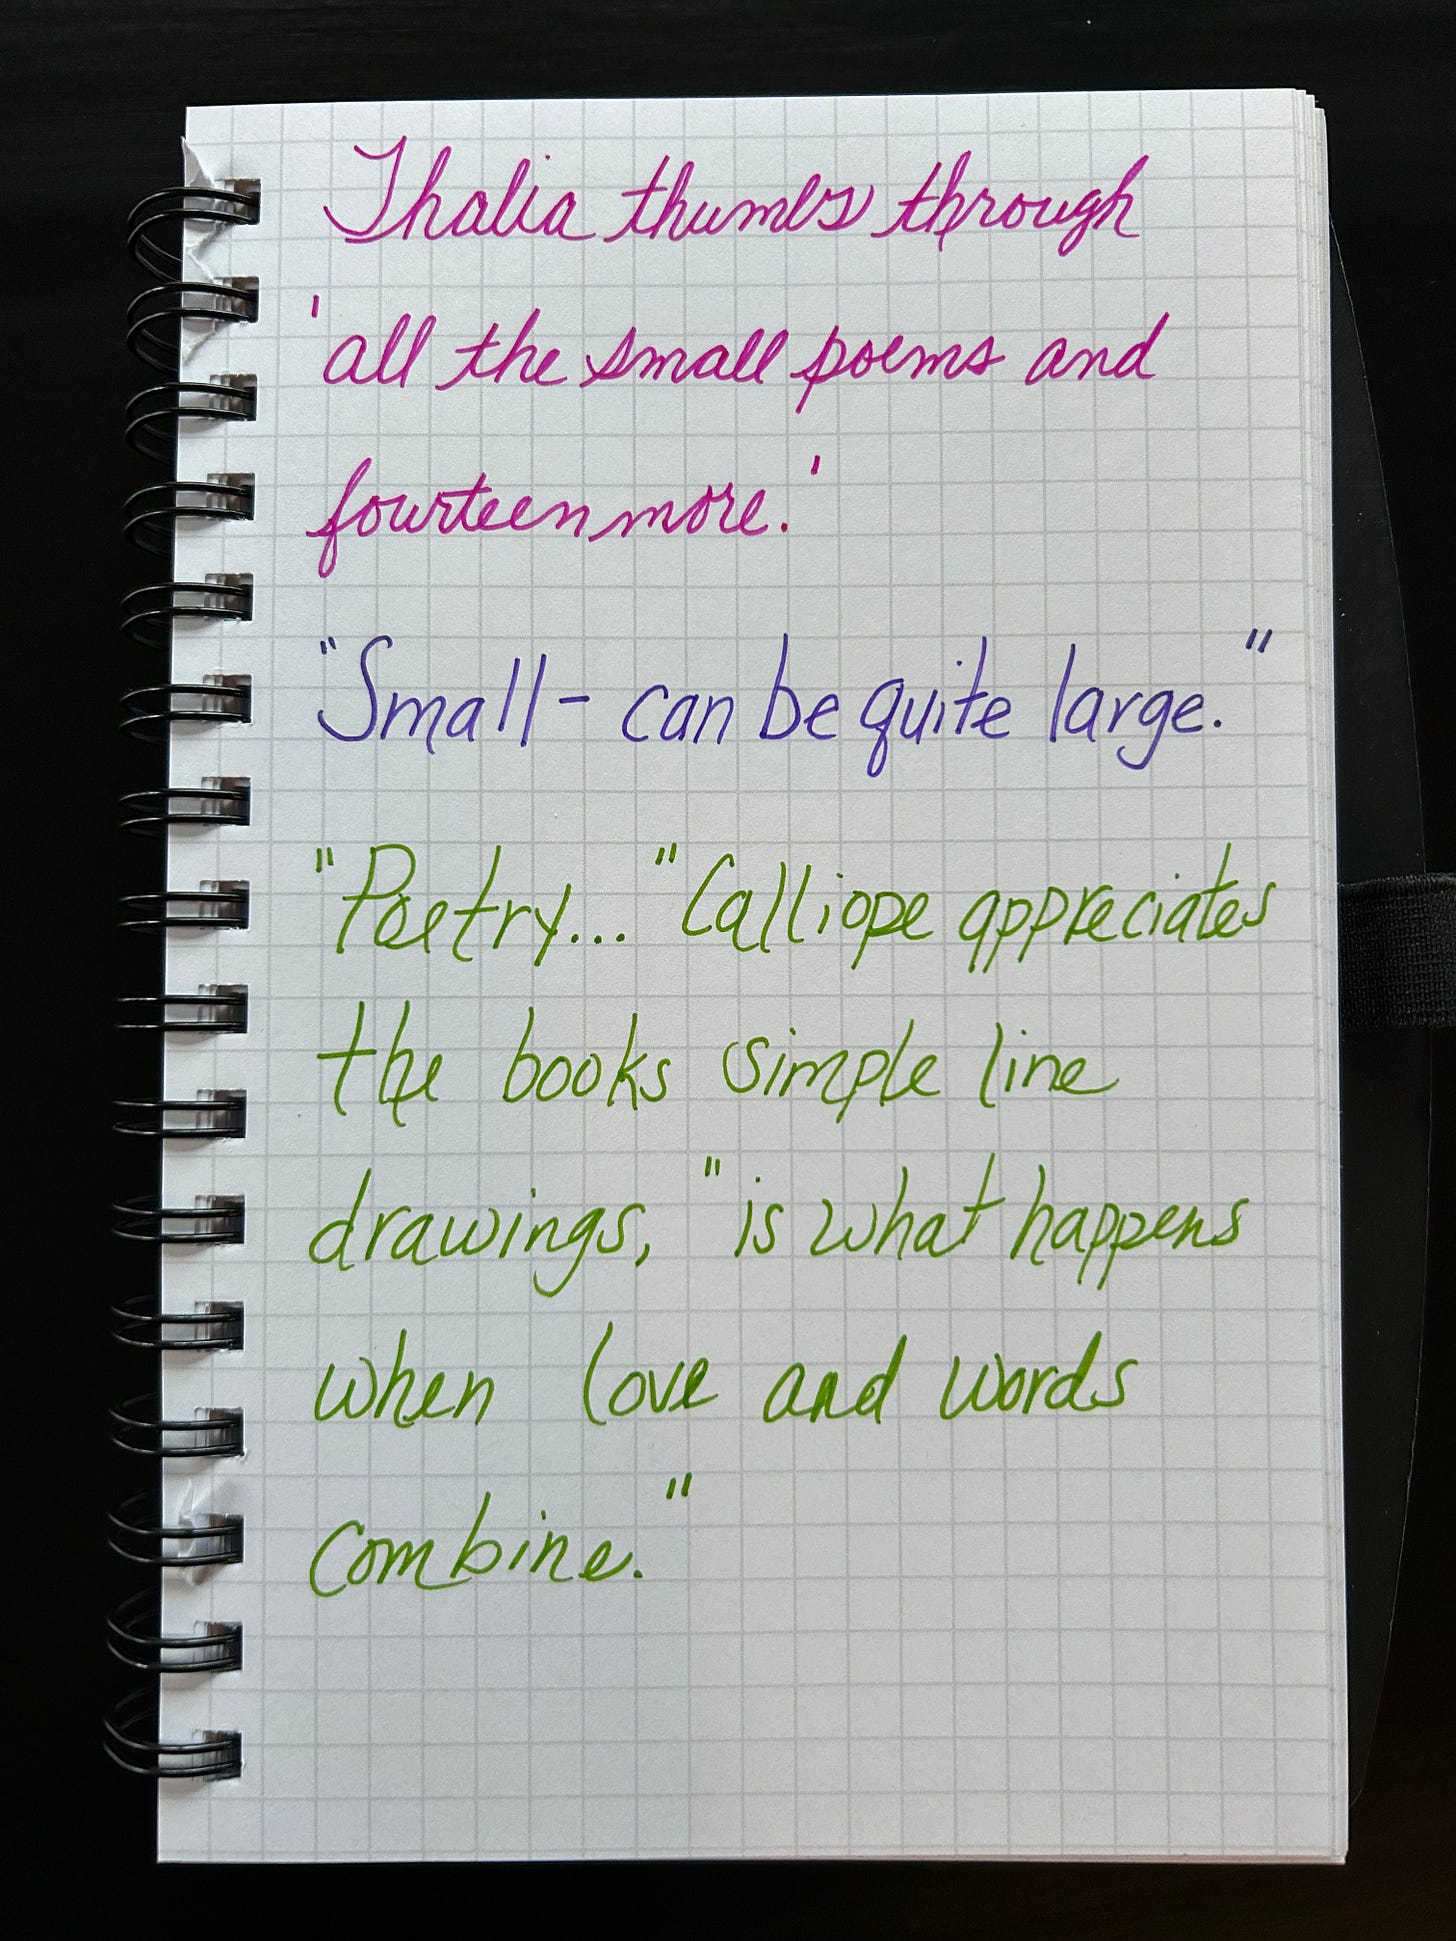 Thalia thumbs through
'all the small poems and
fourteen more.'
"Small - can be quite large."
"Poetry..." Calliope appreciates
the books simple line
drawings, "is what happens
when love and words
combine."